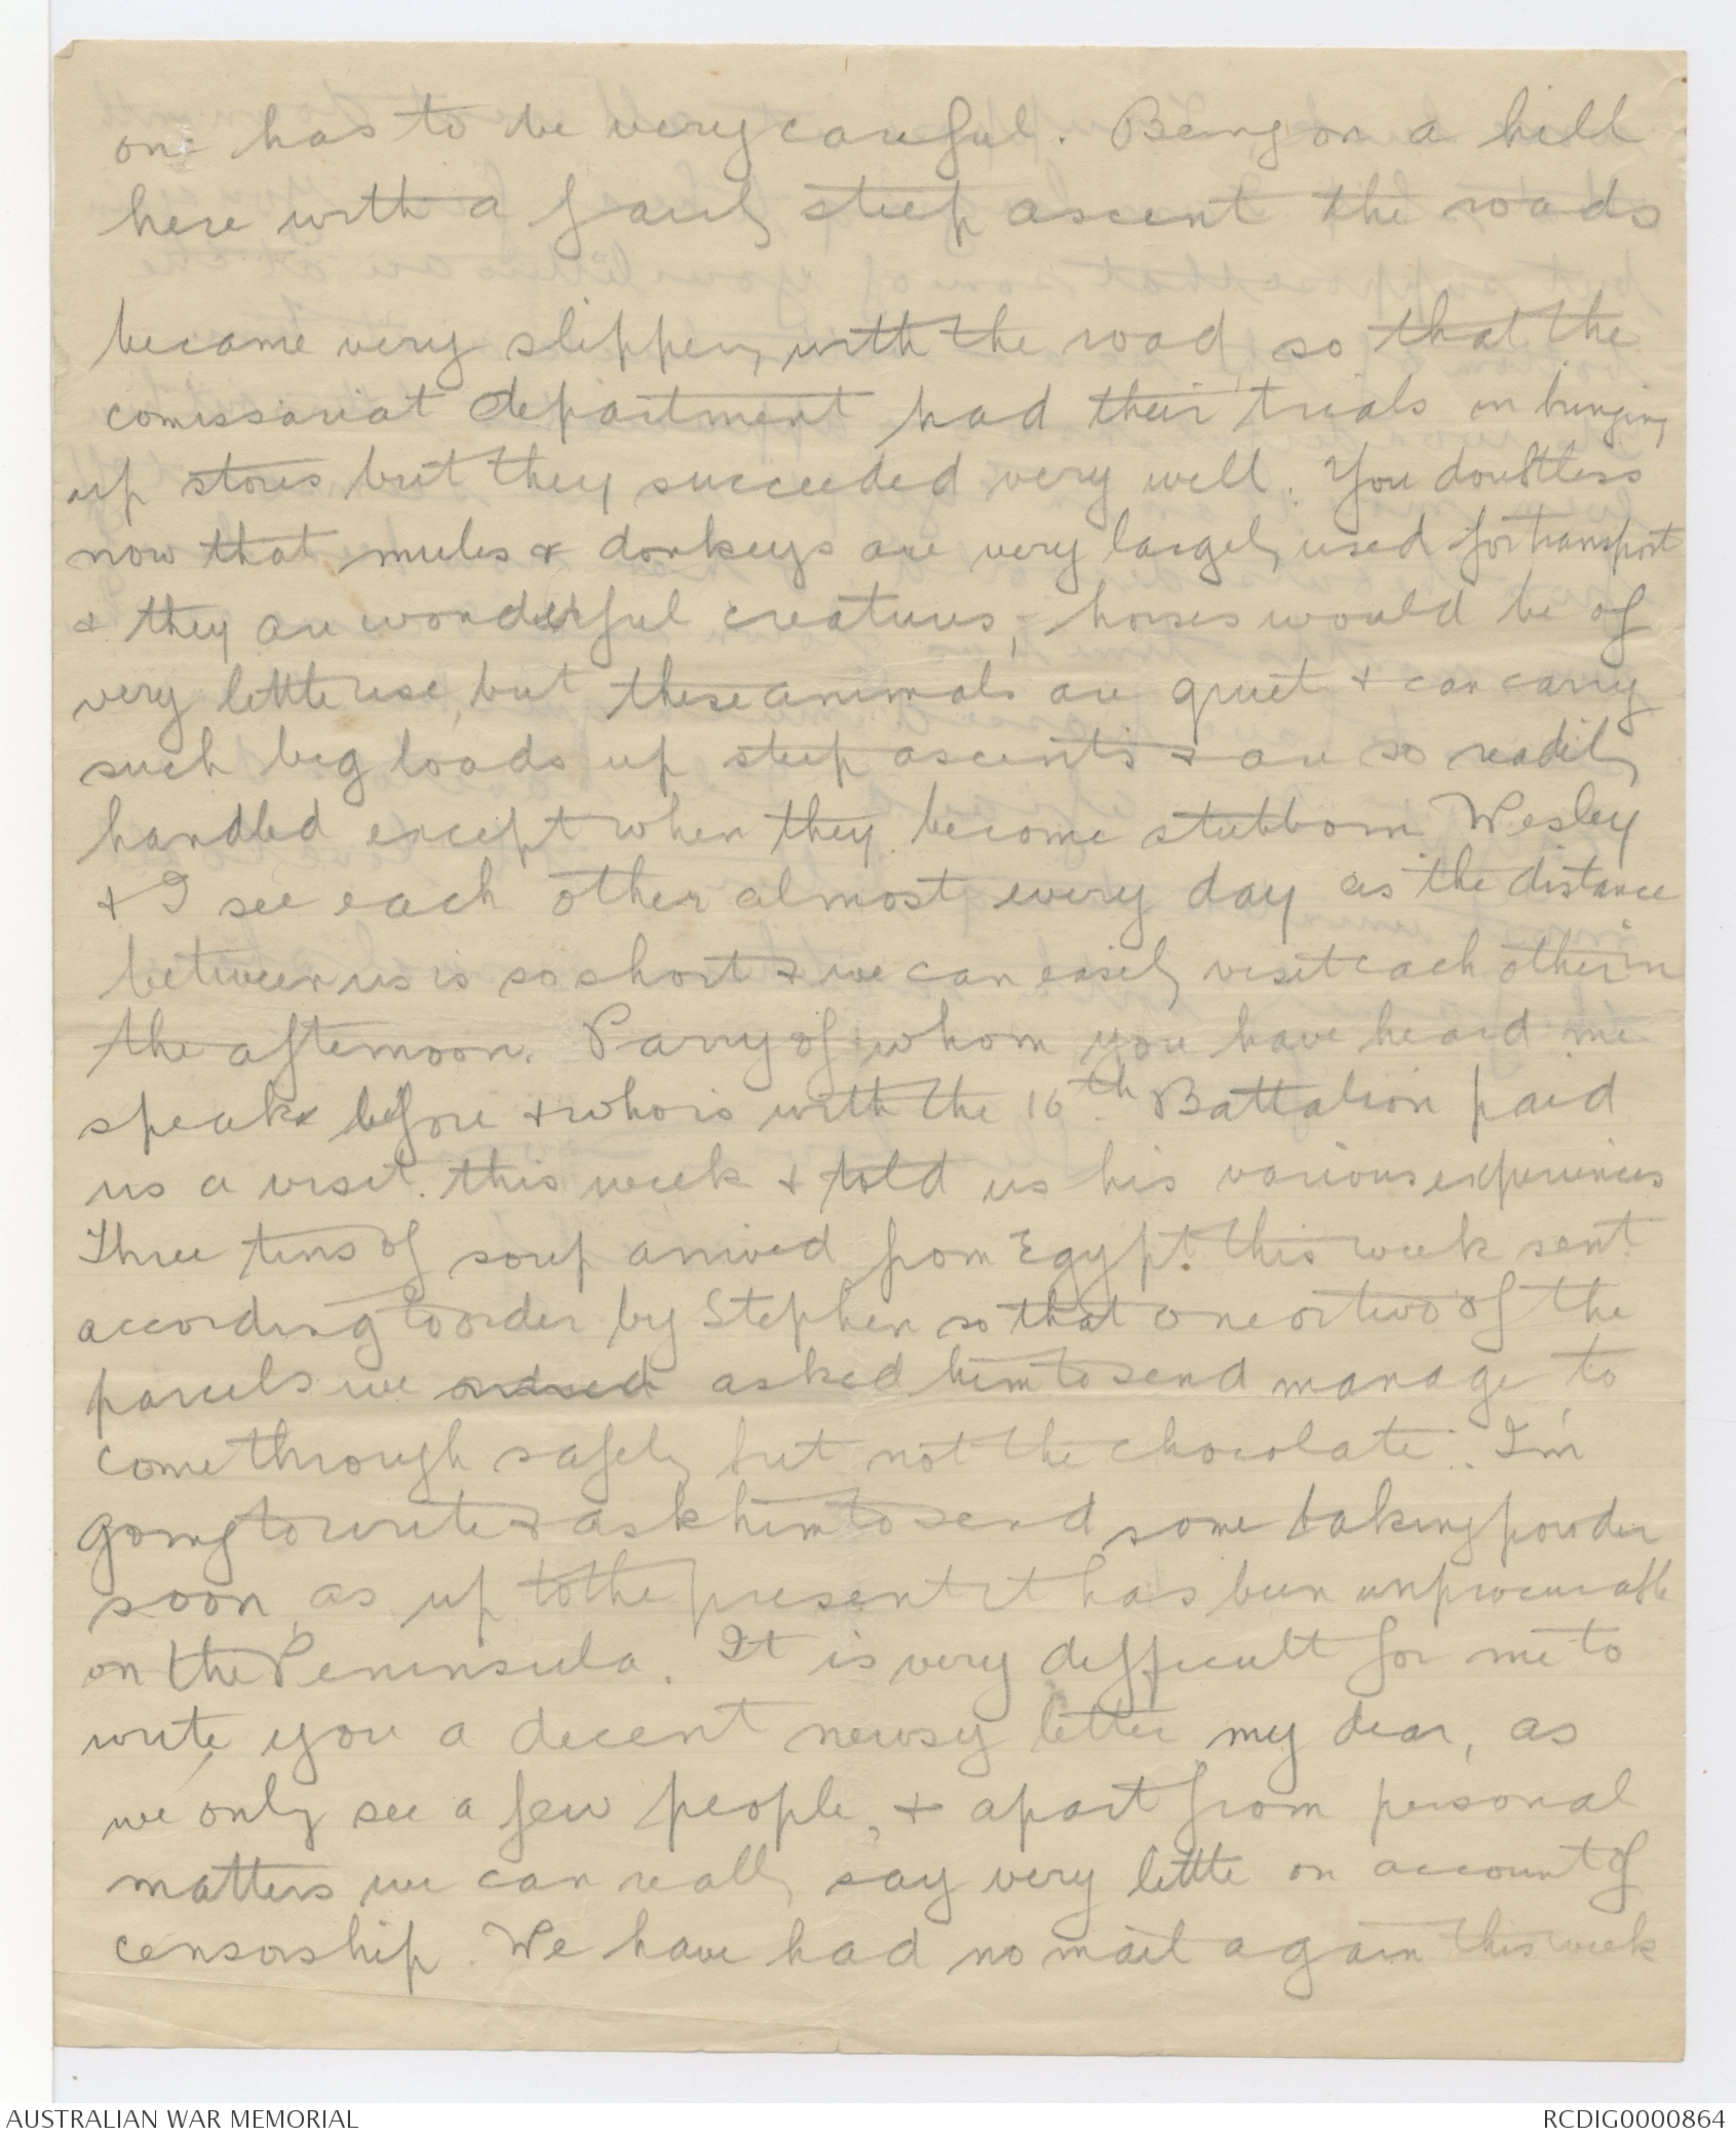 one has to be very careful. Being on a hill
here with a fairly steep ascent the roads
became very slippery with the road, so that the
comissariat department had their trials in bringing
up stores but they succeeded very well. You doubtless
now that mules & donkeys are very largely used for transport
& they are wonderful creatures, - horses would be of
very little use, but these animals are quiet & can carry
such big loads up steep ascents & are so readily
handled except when they become stubborn. Wesley
& I see each other almost every day as the distance
between us is so short & we can easily visit each other in
the afternoon. Parry of whom you have heard me
speak before & who is with the 16th Battalion paid
us a visit this week & told us his various experiences
Three tins of soup arrived from Egypt this week sent
according to order by Stephen so that one or two of the
parcels we ordered asked him to send manage to
come through safely but not the chocolate. I'm
going to write & ask him to send some baking powder
soon, as up to the present it has been unprocurable
on the Peninsula. It is very difficult for me to
write you a decent newsy letter my dear, as
we only see a few people, & apart from personal
matters we can really say very little on account of
censorship. We have had no mail again this week
AUSTRALIAN WAR MEMORIAL
RCDIG0000864